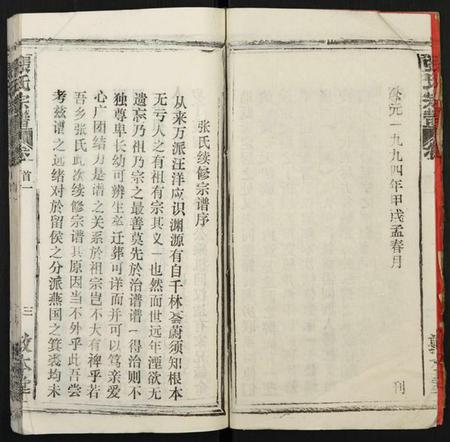 张氏宗谱
公元一九九四年甲戌孟春月
刊
张氏续修宗谱序
从来万派汪洋应识渊源有自千林荟蔚须知根本
无亏人之有祖有宗其义一也然而世远年湮欲无
遗忘乃祖乃宗之最善莫先於治谱谱一得治则不
独尊卑长幼可辨生卒迁葬可详而并可以笃亲爱
心广团结力是谱之关系於祖宗岂不大有裨乎若
吾乡张氏此次续修宗谱其原因当不外乎此吾尝
考兹谱之远绪对於留侯之分派燕国之箕裘均未
張氏宗譜
卷首一
三